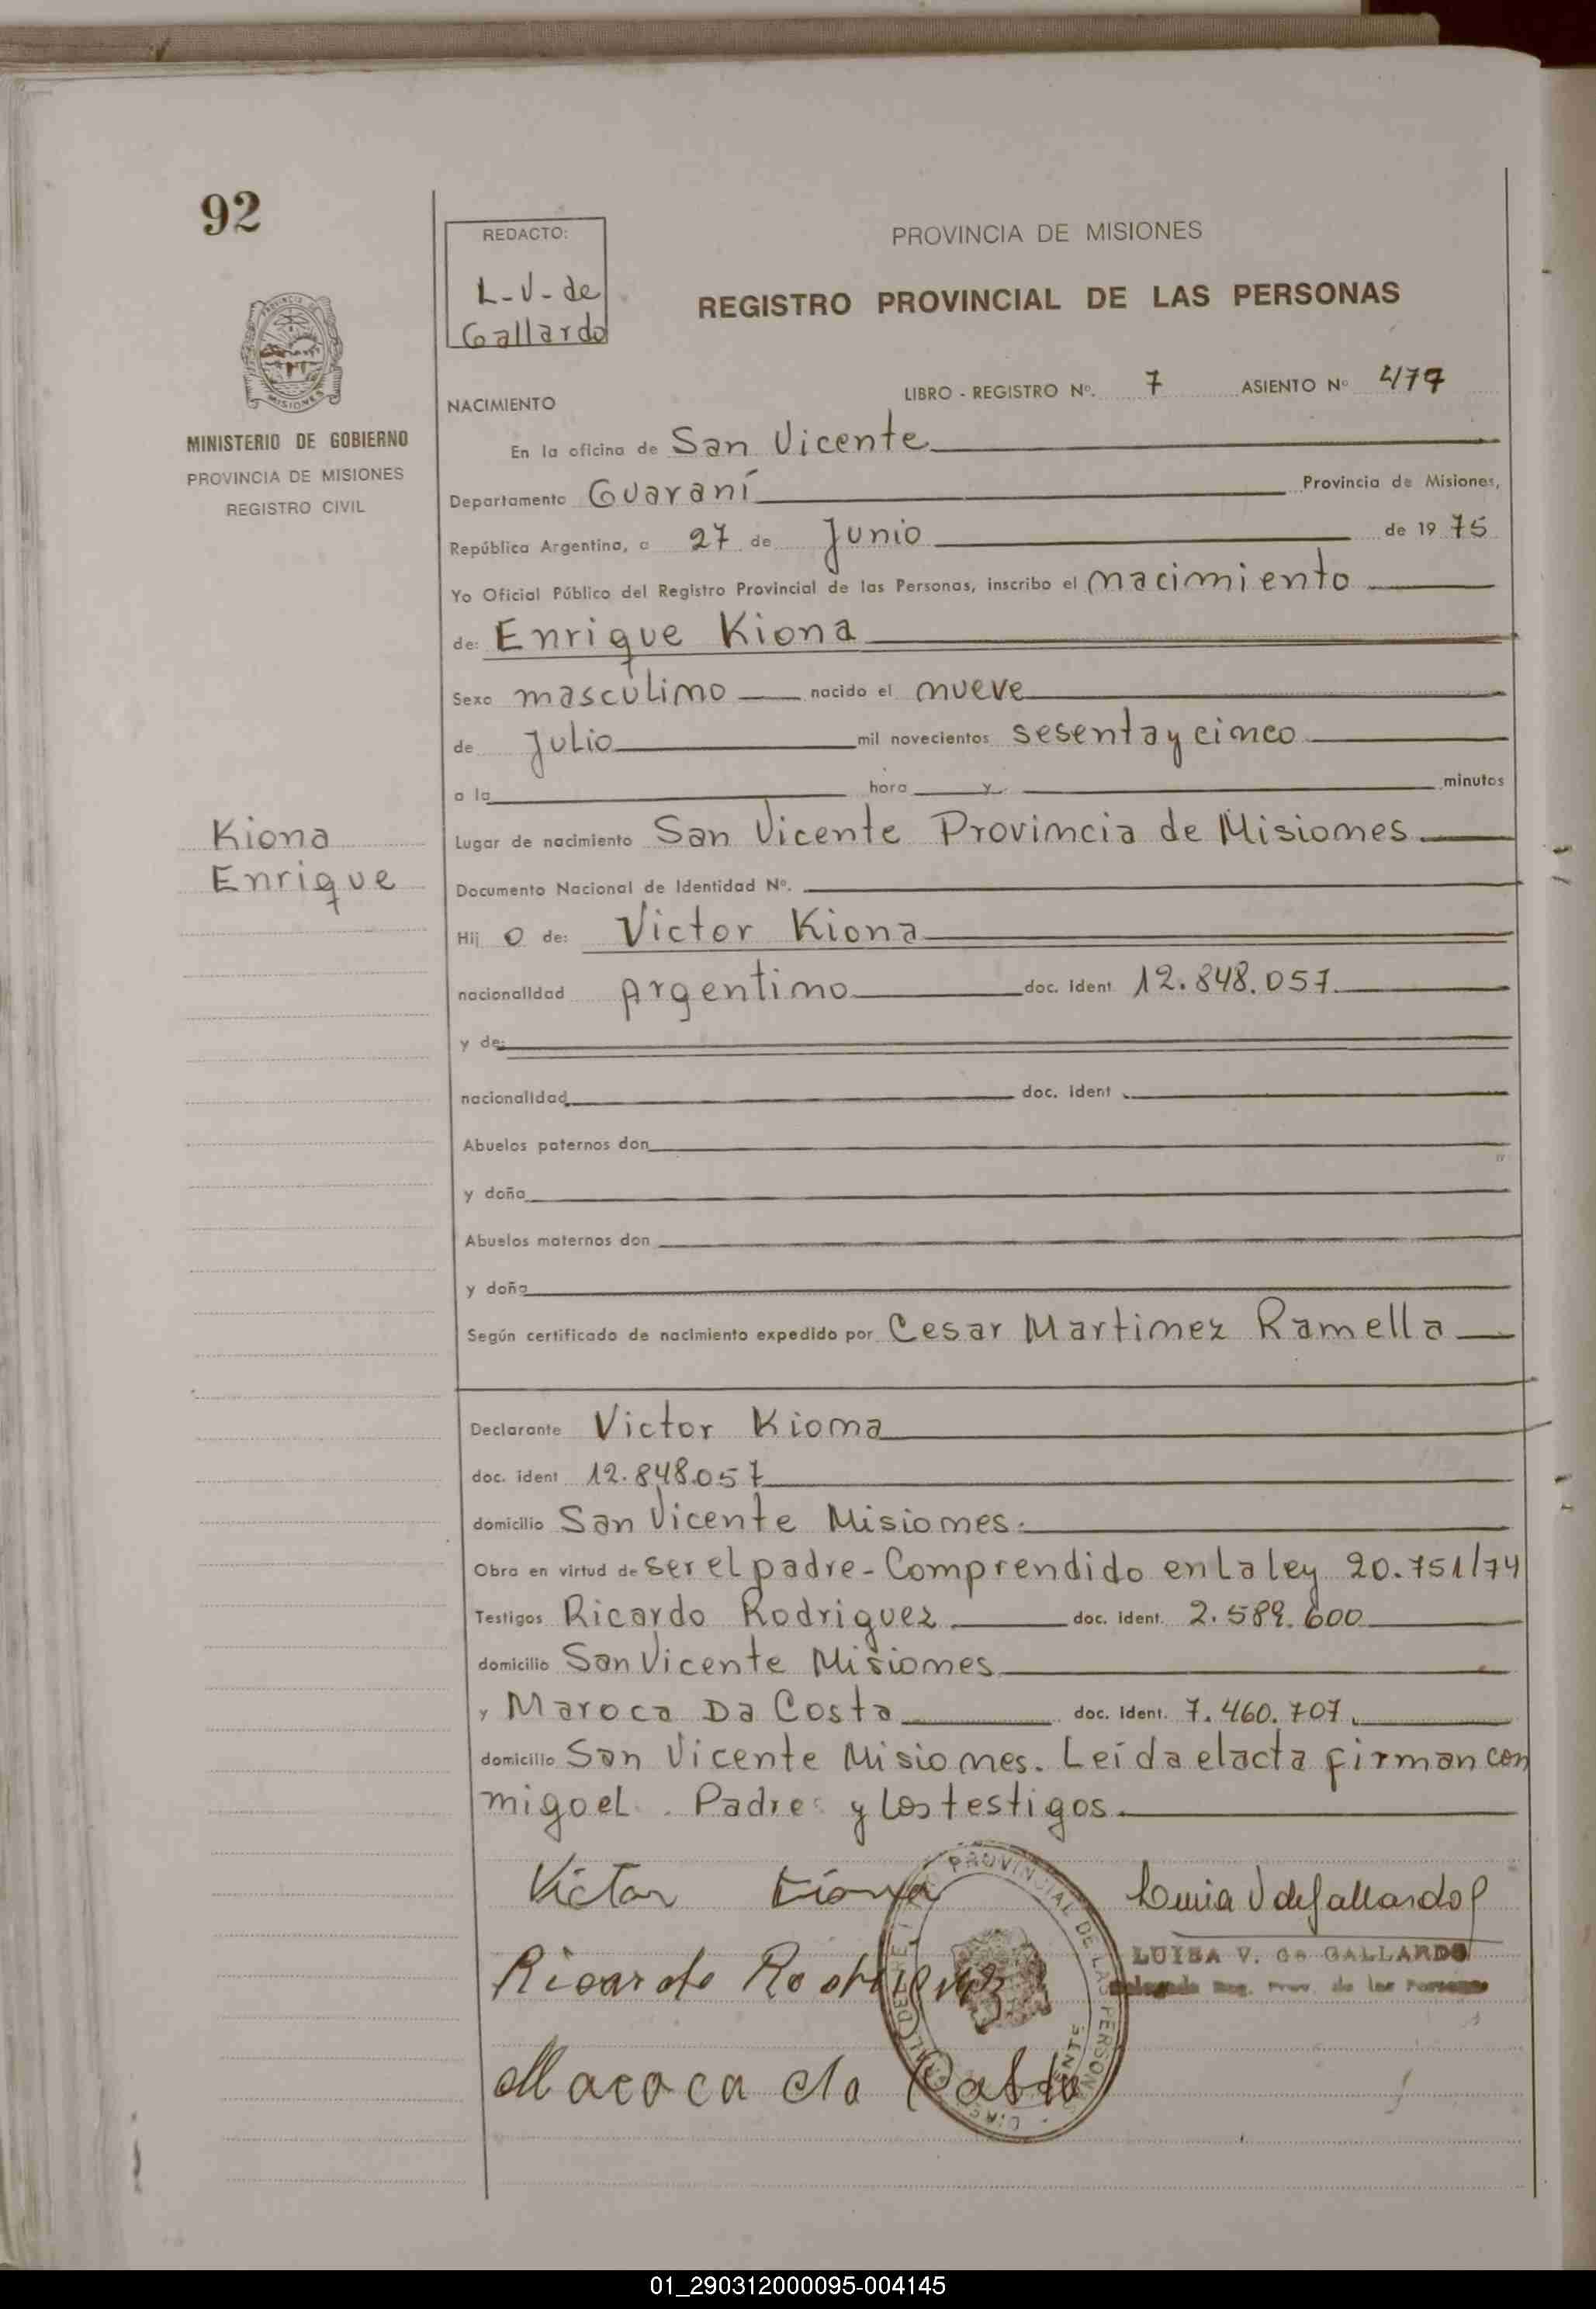 92
REDACTO:
L-V-de
Gallardo
PROVINCIA DE MISIONES
REGISTRO PROVINCIAL DE LAS PERSONAS
MISIONES
MINISTERIO DE GOBIERNO
PROVINCIA DE MISIONES
REGISTRO CIVIL
NACIMIENTO
LIBRO - REGISTRO Nº. 7 ASIENTO Nº 477
En la oficina de San Vicente
Departamento Guaraní Provincia de Misiones,
República Argentina, a 27 de Junio de 19 75
Yo Oficial Público del Registro Provincial de las Personas, inscribo el nacimiento
de: Enrique Kiona
Sexo masculino nacido el nueve
de Julio mil novecientos sesenta y cinco
a la hora y minutos
Kiona
Enrique
Lugar de nacimiento San Vicente Provincia de Misiones
Documento Nacional de Identidad Nº.
Hij o de: Victor Kiona
nacionalidad Argentino doc. ident 12.848.057
y de:
nacionalidad doc. ident
Abuelos paternos don
y doña
Abuelos maternos don
y doña
Según certificado de nacimiento expedido por Cesar Martinez Ramella
Declarante Victor Kiona
doc. ident 12.848.057
domicilio San Vicente Misiones.
Obra en virtud de ser el padre - Comprendido en La ley 20.751/74
Testigos Ricardo Rodriguez doc. ident. 2.589.600
domicilio San Vicente Misiones
y Maroca Da Costa doc. ident. 7.460.707
domicilio San Vicente Misiones. Leída el acta firman con
migo el. Padre y Los testigos.
Victor Kiona
Luisa V de Gallardo
LUISA V. de GALLARDO
Delegada Reg. Prov. de las Personas
Ricardo Rodriguez
Maroca da Costa
PROVINCIAL DE LAS PERSONAS
01_290312000095-004145